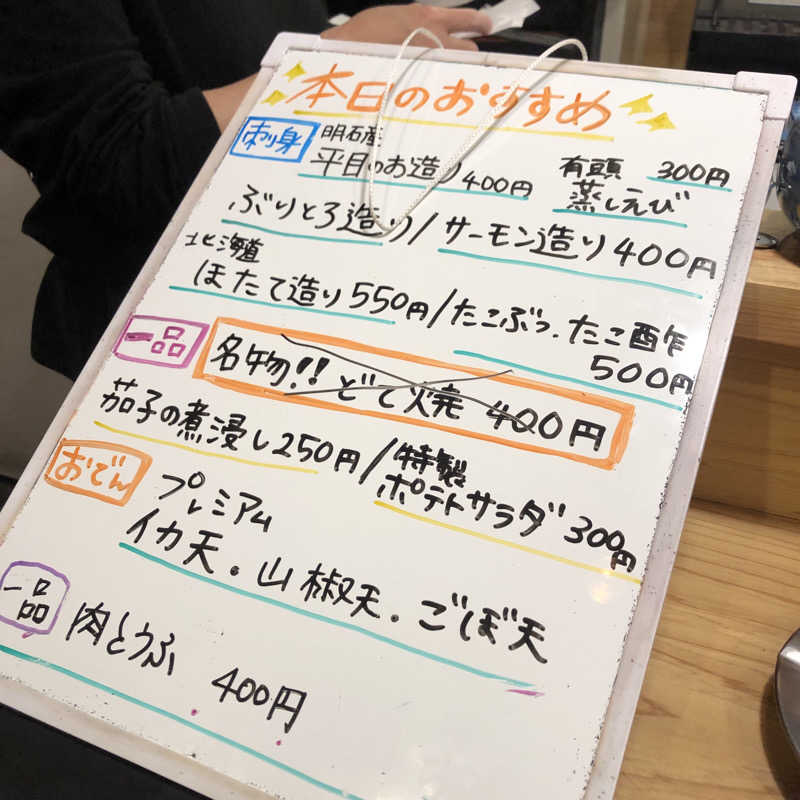 本日のおすすめ
刺身 明石産 平目のお造り 400円 有頭 蒸しえび 300円
ぶりとろ造り/サーモン造り 400円
北海道 ほたて造り 550円/たこぶつ.たこ酢 500円
一品 名物!! どて焼 400円
茄子の煮浸し 250円/特製 ポテトサラダ 300円
おでん プレミアム
イカ天.山椒天.ごぼ天
一品 肉とうふ 400円